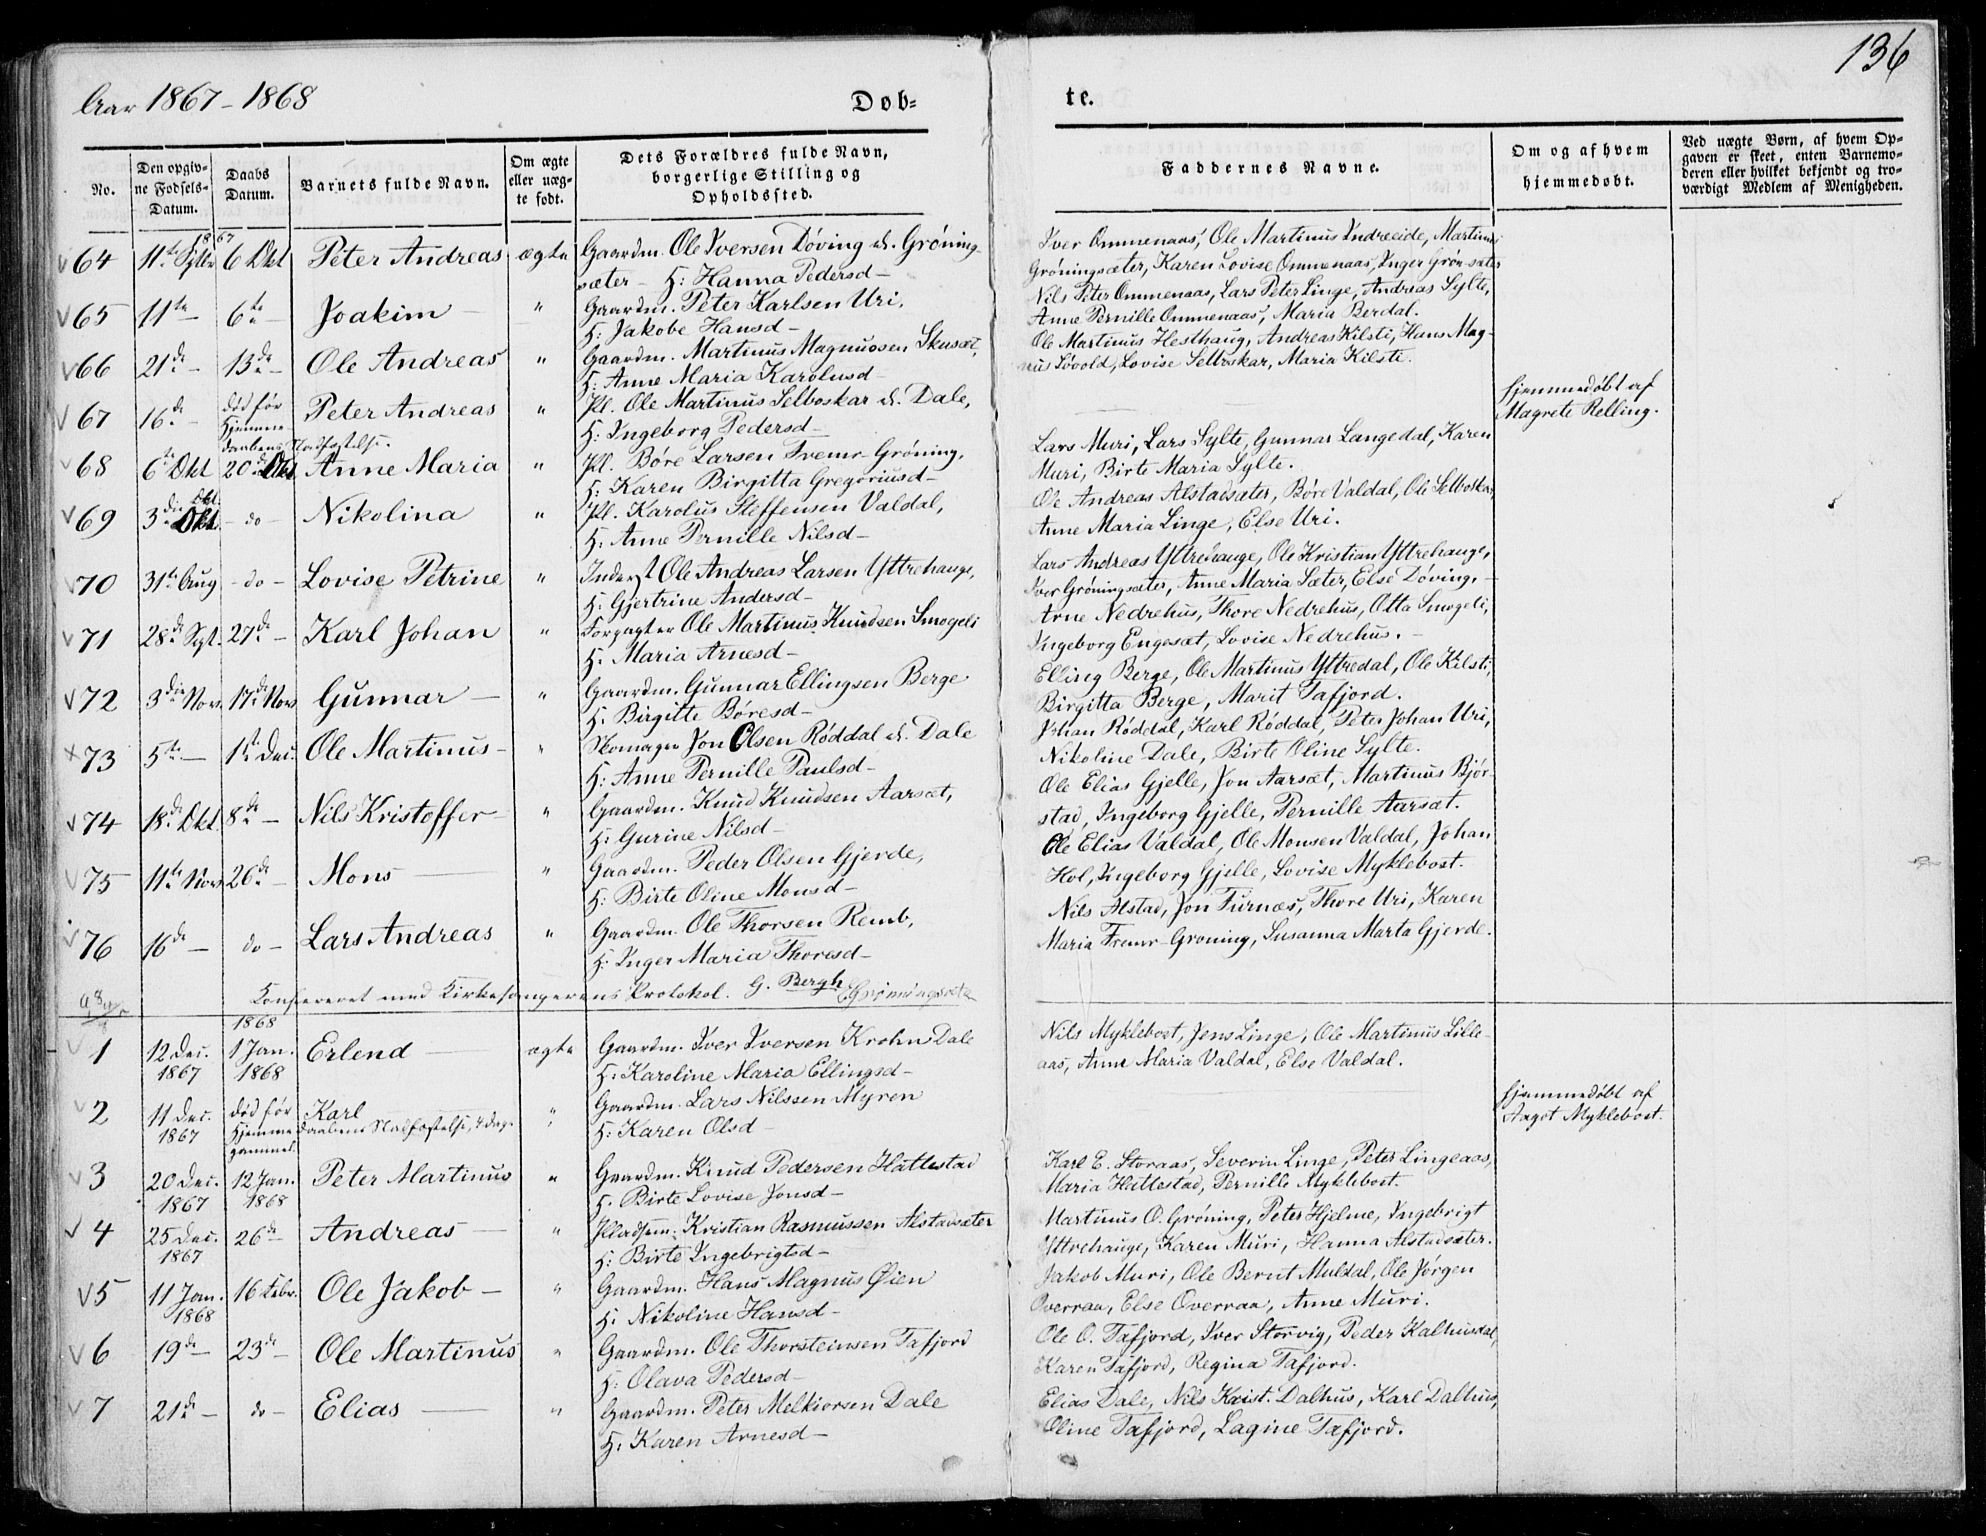 136
Aar 1867-1868
Døb-
te.
No.
Den opgivne Fødsels-Datum.
Daabs Datum.
Barnets fulde Navn.
Om ægte eller uægte født.
Dets Forældres fulde Navn, borgerlige Stilling og Opholdssted.
Faddernes Navne.
Om og af hvem hjemmedøbt.
Ved uægte Børn, af hvem Opgaven er skeet, enten Barnemoderen eller hvilket bekjendt og troværdigt Medlem af Menigheden.
1867
64 11te Sptbr 6 Okt Peter Andreas ægte Gaardm. Ole Iversen Døving el. Grøning- Iver Ommenaas, Ole Martinus Indreeide, Martinus
sæter – H: Hanna Pedersd – Grøningsæter, Karen Lovise Ommenaas, Inger Grønsæter
65 11te – 6te – Joakim – " Gaardm. Peter Karlsen Uri, Nils Peter Ommenaas, Lars Peter Linge, Andreas Sylte,
H: Jakobe Hansd – Anne Pernille Ommenaas, Maria Berdal.
66 21de – 13de – Ole Andreas " Gaardm. Martinus Magnussen Skusæt, Ole Martinus Hesthaug, Andreas Kilsti, Hans Mag-
H: Anne Maria Karolusd – nus Løvold, Lovise Selboskar, Maria Kilsti.
67 16de – død før Hjemmedaabens Stadfæstelse. Peter Andreas " Pl. Ole Martinus Selboskar el. Dale, Hjemmedøbt af
H: Ingeborg Pedersd – Magrete Relling.
68 6te Okt 20de Okt Anne Maria " Pl. Børe Larsen Fremr-Grøning, Lars Muri, Lars Sylte, Gunnar Langedal, Karen
H: Karen Birgitta Gregoriusd – Muri, Birte Maria Sylte.
69 3die Okt. Okt – do – Nikolina " Pl. Karolus Steffensen Valdal, Ole Andreas Alstadsæter, Børe Valdal, Ole Selboskar
H: Anne Pernille Nilsd – Anne Maria Linge, Else Uri.
70 31te Aug – do – Lovise Petrine " Inderst Ole Andreas Larsen Yttrehauge, Lars Andreas Yttrehauge, Ole Kristian Yttrehauge,
H: Gjertrine Andersd – Iver Grøningsæter, Anne Maria Sæter, Else Døving. –
71 28de Spt. 27de – Karl Johan " Forpagter Ole Martinus Knudsen Smogeli Arne Nedrehus, Thore Nedrehus, Otta Smogeli,
H. Maria Arnesd – Ingeborg Engesæt, Lovise Nedrehus. –
72 3die Nov. 17de Nov Gunnar – " Gaardm. Gunnar Ellingsen Berge Elling Berge, Ole Martinus Yttredal, Ole Kilsti,
H. Birgitte Børesd – Birgitta Berge, Marit Tafjord.
73 5te – 1ste Dec. Ole Martinus – " Skomager Jon Olsen Røddal el. Dale Johan Røddal, Karl Røddal, Peter Johan Uri,
H: Anne Pernille Paulsd – Nikoline Dale, Birte Oline Sylte.
74 18de Okt 8de – Nils Kristoffer – " Gaardm. Knud Knudsen Aarsæt, Ole Elias Gjelle, Jon Aarsæt, Martinus Bjør-
H: Gurine Nilsd – stad, Ingeborg Gjelle, Pernille Aarsæt.
75 11te Nov 26de – Mons – " Gaardm. Peder Olsen Gjerde, Ole Elias Valdal, Ole Monsen Valdal, Johan
H: Birte Oline Monsd – Hol, Ingeborg Gjelle, Lovise Myklebost.
76 16de – do – Lars Andreas " Gaardm. Ole Thorsen Remb, Nils Alstad, Jon Furnæs, Thore Uri, Karen
H: Inger Maria Thoresd – Maria Fremr-Grøning, Susanna Marta Gjerde.
Konfereret med Kirkesangerens Protokol. G. Bergh Grøningsæter
1868
1 12 Dec. 1867 1 Jan. 1868 Erlend – ægte Gaardm. Iver Iversen Krohn Dale Nils Myklebost, Jens Linge, Ole Martinus Lille-
H: Karoline Maria Ellingsd – aas, Anne Maria Valdal, Else Valdal.
2 11 Dec. 1867 Død før Hjemmedaabens Stadfæstelse, 4 Dag. gammel. Karl " Gaardm. Lars Nilssen Myren Hjemmedøbt af
H: Karen Olsd – Aagot Myklebost.
3 20 Dec. 1867 12 Jan. 1868 Peter Martinus " Gaardm. Knud Pedersen Hattestad Karl E. Storaas, Severin Linge, Peter Lingeaas,
H. Birte Lovise Jonsd – Maria Hattestad, Pernille Myklebost.
4 25 Dec. 1867 26de – Andreas – " Pladsm. Kristian Rasmussen Alstadsæter Martinus O. Grøning, Peter Hjelme, Ingebrigt
H: Birte Ingebrigtsd – Yttrehauge, Karen Muri, Hanna Alstadsæter.
5 11 Jan. 1868 16 Febr. Ole Jakob – " Gaardm. Hans Magnus Øien Jakob Muri, Ole Bernt Muldal, Ole Jørgen
H: Nikoline Hansd – Overraa, Else Overraa, Anne Muri.
6 19de – 23de Ole Martinus " Gaardm. Ole Thorsteinsen Tafjord Ole O. Tafjord, Iver Storvig, Peder Kalhusdal,
H: Olava Pedersd – Karen Tafjord, Regina Tafjord.
7 21de – do – Elias – " Gaardm. Peter Melkiorsen Dale Elias Dale, Nils Krist. Dalhus, Karl Dalhus,
H: Karen Arnesd – Oline Tafjord, Lagine Tafjord.